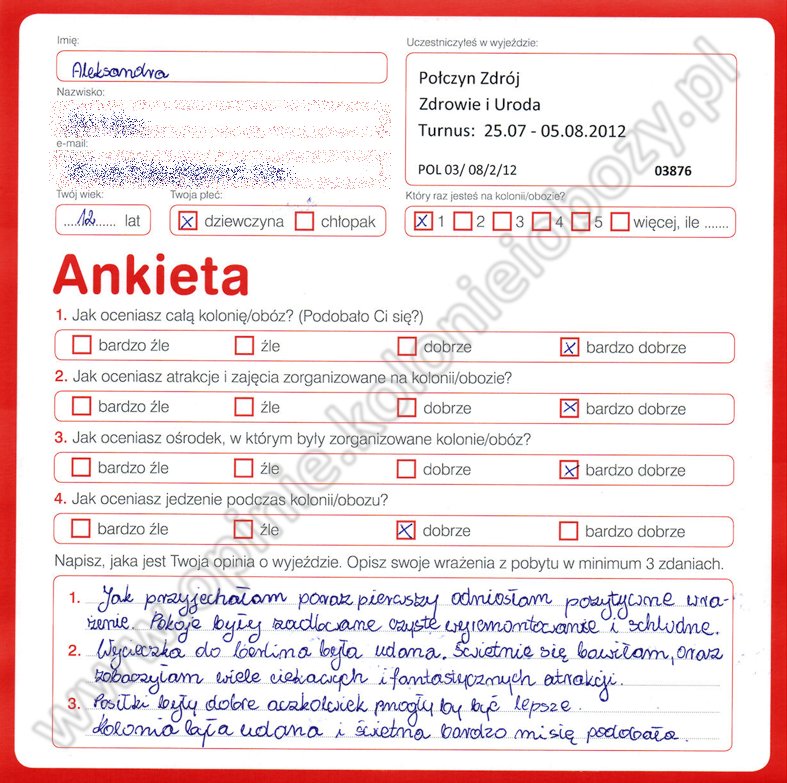 Imię:
Aleksandra
Uczestniczyłeś w wyjeździe:
Połczyn Zdrój
Zdrowie i Uroda
Turnus: 25.07 - 05.08.2012
POL 03/ 08/2/12 03876
Nazwisko:
e-mail:
Twój wiek:
12 lat
Twoja płeć:
dziewczyna chłopak
Który raz jesteś na kolonii/obozie?
1 2 3 4 5 więcej, ile .......
Ankieta
1. Jak oceniasz całą kolonię/obóz? (Podobało Ci się?)
bardzo źle źle dobrze bardzo dobrze
2. Jak oceniasz atrakcje i zajęcia zorganizowane na kolonii/obozie?
bardzo źle źle dobrze bardzo dobrze
3. Jak oceniasz ośrodek, w którym były zorganizowane kolonie/obóz?
bardzo źle źle dobrze bardzo dobrze
4. Jak oceniasz jedzenie podczas kolonii/obozu?
bardzo źle źle dobrze bardzo dobrze
Napisz, jaka jest Twoja opinia o wyjeździe. Opisz swoje wrażenia z pobytu w minimum 3 zdaniach.
1. Jak przyjechałam poraz pierwszy odniosłam pozytywne wra-
żenie. Pokoje były zadbane czyste wyremontowane i schludne.
2. Wycieczka do berlina była udana. Świetnie się bawiłam, oraz
zobaczyłam wiele ciekawych i fantastycznych atrakcji.
3. Posiłki były dobre aczkolwiek mogły by być lepsze.
Kolonia była udana i świetna bardzo mi się podobała.
www.opinie.kolonieiobozy.pl